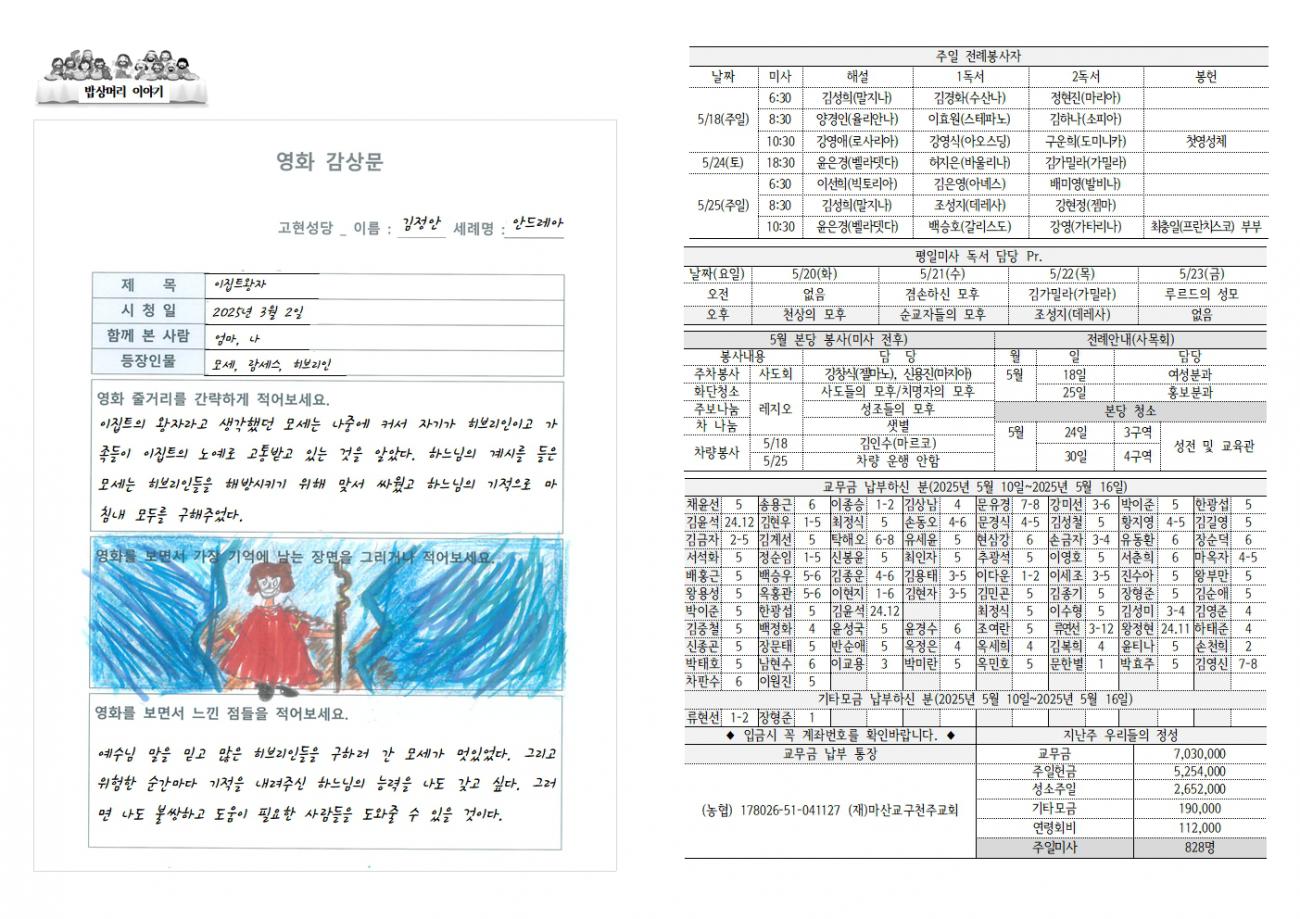 밥상머리 이야기
영화 감상문
고현성당 _ 이름 : 김정안 세례명 : 안드레아
제 목 이집트왕자
시 청 일 2025년 3월 2일
함께 본 사람 엄마, 나
등장인물 모세, 람세스, 히브리인
영화 줄거리를 간략하게 적어보세요.
이집트의 왕자라고 생각했던 모세는 나중에 커서 자기가 히브리인이고 가
족들이 이집트의 노예로 고통받고 있는 것을 알았다. 하느님의 계시를 들은
모세는 히브리인들을 해방시키기 위해 맞서 싸웠고 하느님의 기적으로 마
침내 모두를 구해주었다.
영화를 보면서 가장 기억에 남는 장면을 그리거나 적어보세요.
영화를 보면서 느낀 점들을 적어보세요.
예수님 말을 믿고 많은 히브리인들을 구하러 간 모세가 멋있었다. 그리고
위험한 순간마다 기적을 내려주신 하느님의 능력을 나도 갖고 싶다. 그러
면 나도 불쌍하고 도움이 필요한 사람들을 도와줄 수 있을 것이다.
주일 전례봉사자
날짜 미사 해설 1독서 2독서 봉헌
5/18(주일) 6:30 김성희(말지나) 김경화(수산나) 정현진(마리아)
8:30 양경인(율리안나) 이효원(스테파노) 김하나(소피아)
10:30 강영애(로사리아) 강영식(아오스딩) 구운희(도미니카) 첫영성체
5/24(토) 18:30 윤은경(벨라뎃다) 허지은(바울리나) 김가밀라(가밀라)
5/25(주일) 6:30 이선희(빅토리아) 김은영(아네스) 배미영(발비나)
8:30 김성희(말지나) 조성지(데레사) 강현정(젬마)
10:30 윤은경(벨라뎃다) 백승호(갈리스도) 강영(가타리나) 최충일(프란치스코) 부부
평일미사 독서 담당 Pr.
날짜(요일) 5/20(화) 5/21(수) 5/22(목) 5/23(금)
오전 없음 겸손하신 모후 김가밀라(가밀라) 루르드의 성모
오후 천상의 모후 순교자들의 모후 조성지(데레사) 없음
5월 본당 봉사(미사 전후) 전례안내(사목회)
봉사내용 담 당 월 일 담당
주차봉사 사도회 강창식(젤마노), 신용진(마지아) 5월 18일 여성분과
화단청소 레지오 사도들의 모후/치명자의 모후 25일 홍보분과
주보나눔 성조들의 모후 본당 청소
차 나눔 샛별 5월 24일 3구역 성전 및 교육관
차량봉사 5/18 김인수(마르코)
5/25 차량 운행 안함 30일 4구역
교무금 납부하신 분(2025년 5월 10일~2025년 5월 16일)
채윤선 5 송용근 6 이종승 1-2 김상남 4 문유경 7-8 강미선 3-6 박이준 5 한광섭 5
김윤석 24.12 김현우 1-5 최정식 5 손동오 4-6 문경식 4-5 김성철 5 황지영 4-5 김길영 5
김금자 2-5 김계선 5 탁해오 6-8 유세윤 5 현삼강 6 손금자 3-4 유동환 6 장순덕 6
서석화 5 정순임 1-5 신봉윤 5 최인자 5 추광석 5 이영호 5 서춘희 6 마옥자 4-5
배홍근 5 백승우 5-6 김종운 4-6 김용태 3-5 이다운 1-2 이세조 3-5 진수아 5 왕부만 5
왕용성 5 옥홍관 5-6 이현지 1-6 김현자 3-5 김민곤 5 김종기 5 장형준 5 김순애 5
박이준 5 한광섭 5 김윤석 24.12 최정식 5 이수형 5 김성미 3-4 김영준 4
김중철 5 백정화 4 윤성국 5 윤경수 6 조여란 5 류연선 3-12 왕정현 24.11 하태준 4
신종곤 5 장문태 5 반순애 5 옥정은 4 옥세희 4 김복희 4 윤티나 5 손천희 2
박태호 5 남현수 6 이교용 3 박미란 5 옥민호 5 문한별 1 박효주 5 김영신 7-8
차판수 6 이원진 5
기타모금 납부하신 분(2025년 5월 10일~2025년 5월 16일)
류현선 1-2 장형준 1
◆ 입금시 꼭 계좌번호를 확인바랍니다. ◆ 지난주 우리들의 정성
교무금 납부 통장 교무금 7,030,000
주일헌금 5,254,000
성소주일 2,652,000
(농협) 178026-51-041127 (재)마산교구천주교회 기타모금 190,000
연령회비 112,000
주일미사 828명